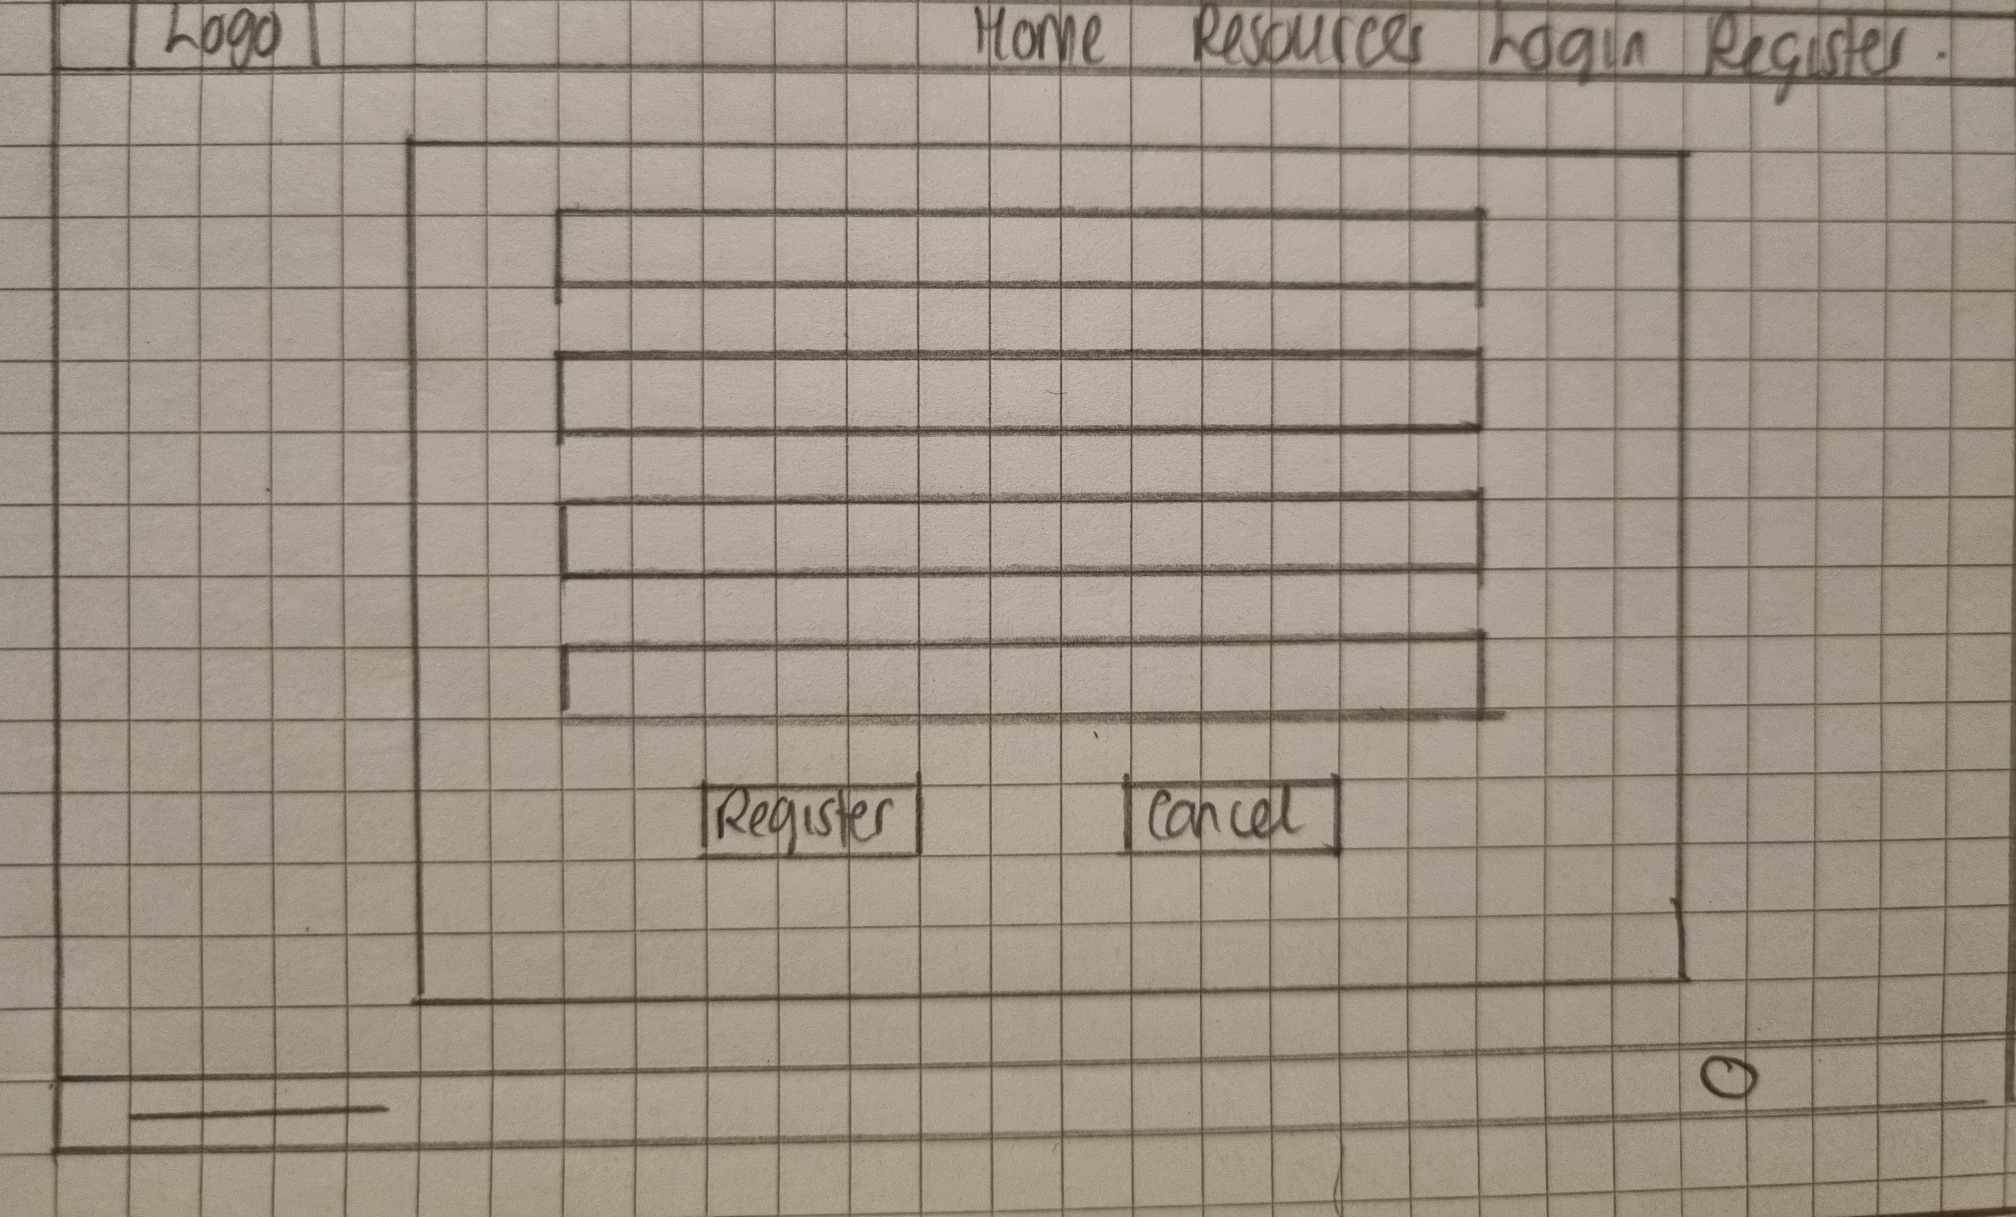 Logo Home Resources Login Register.
Register Cancel